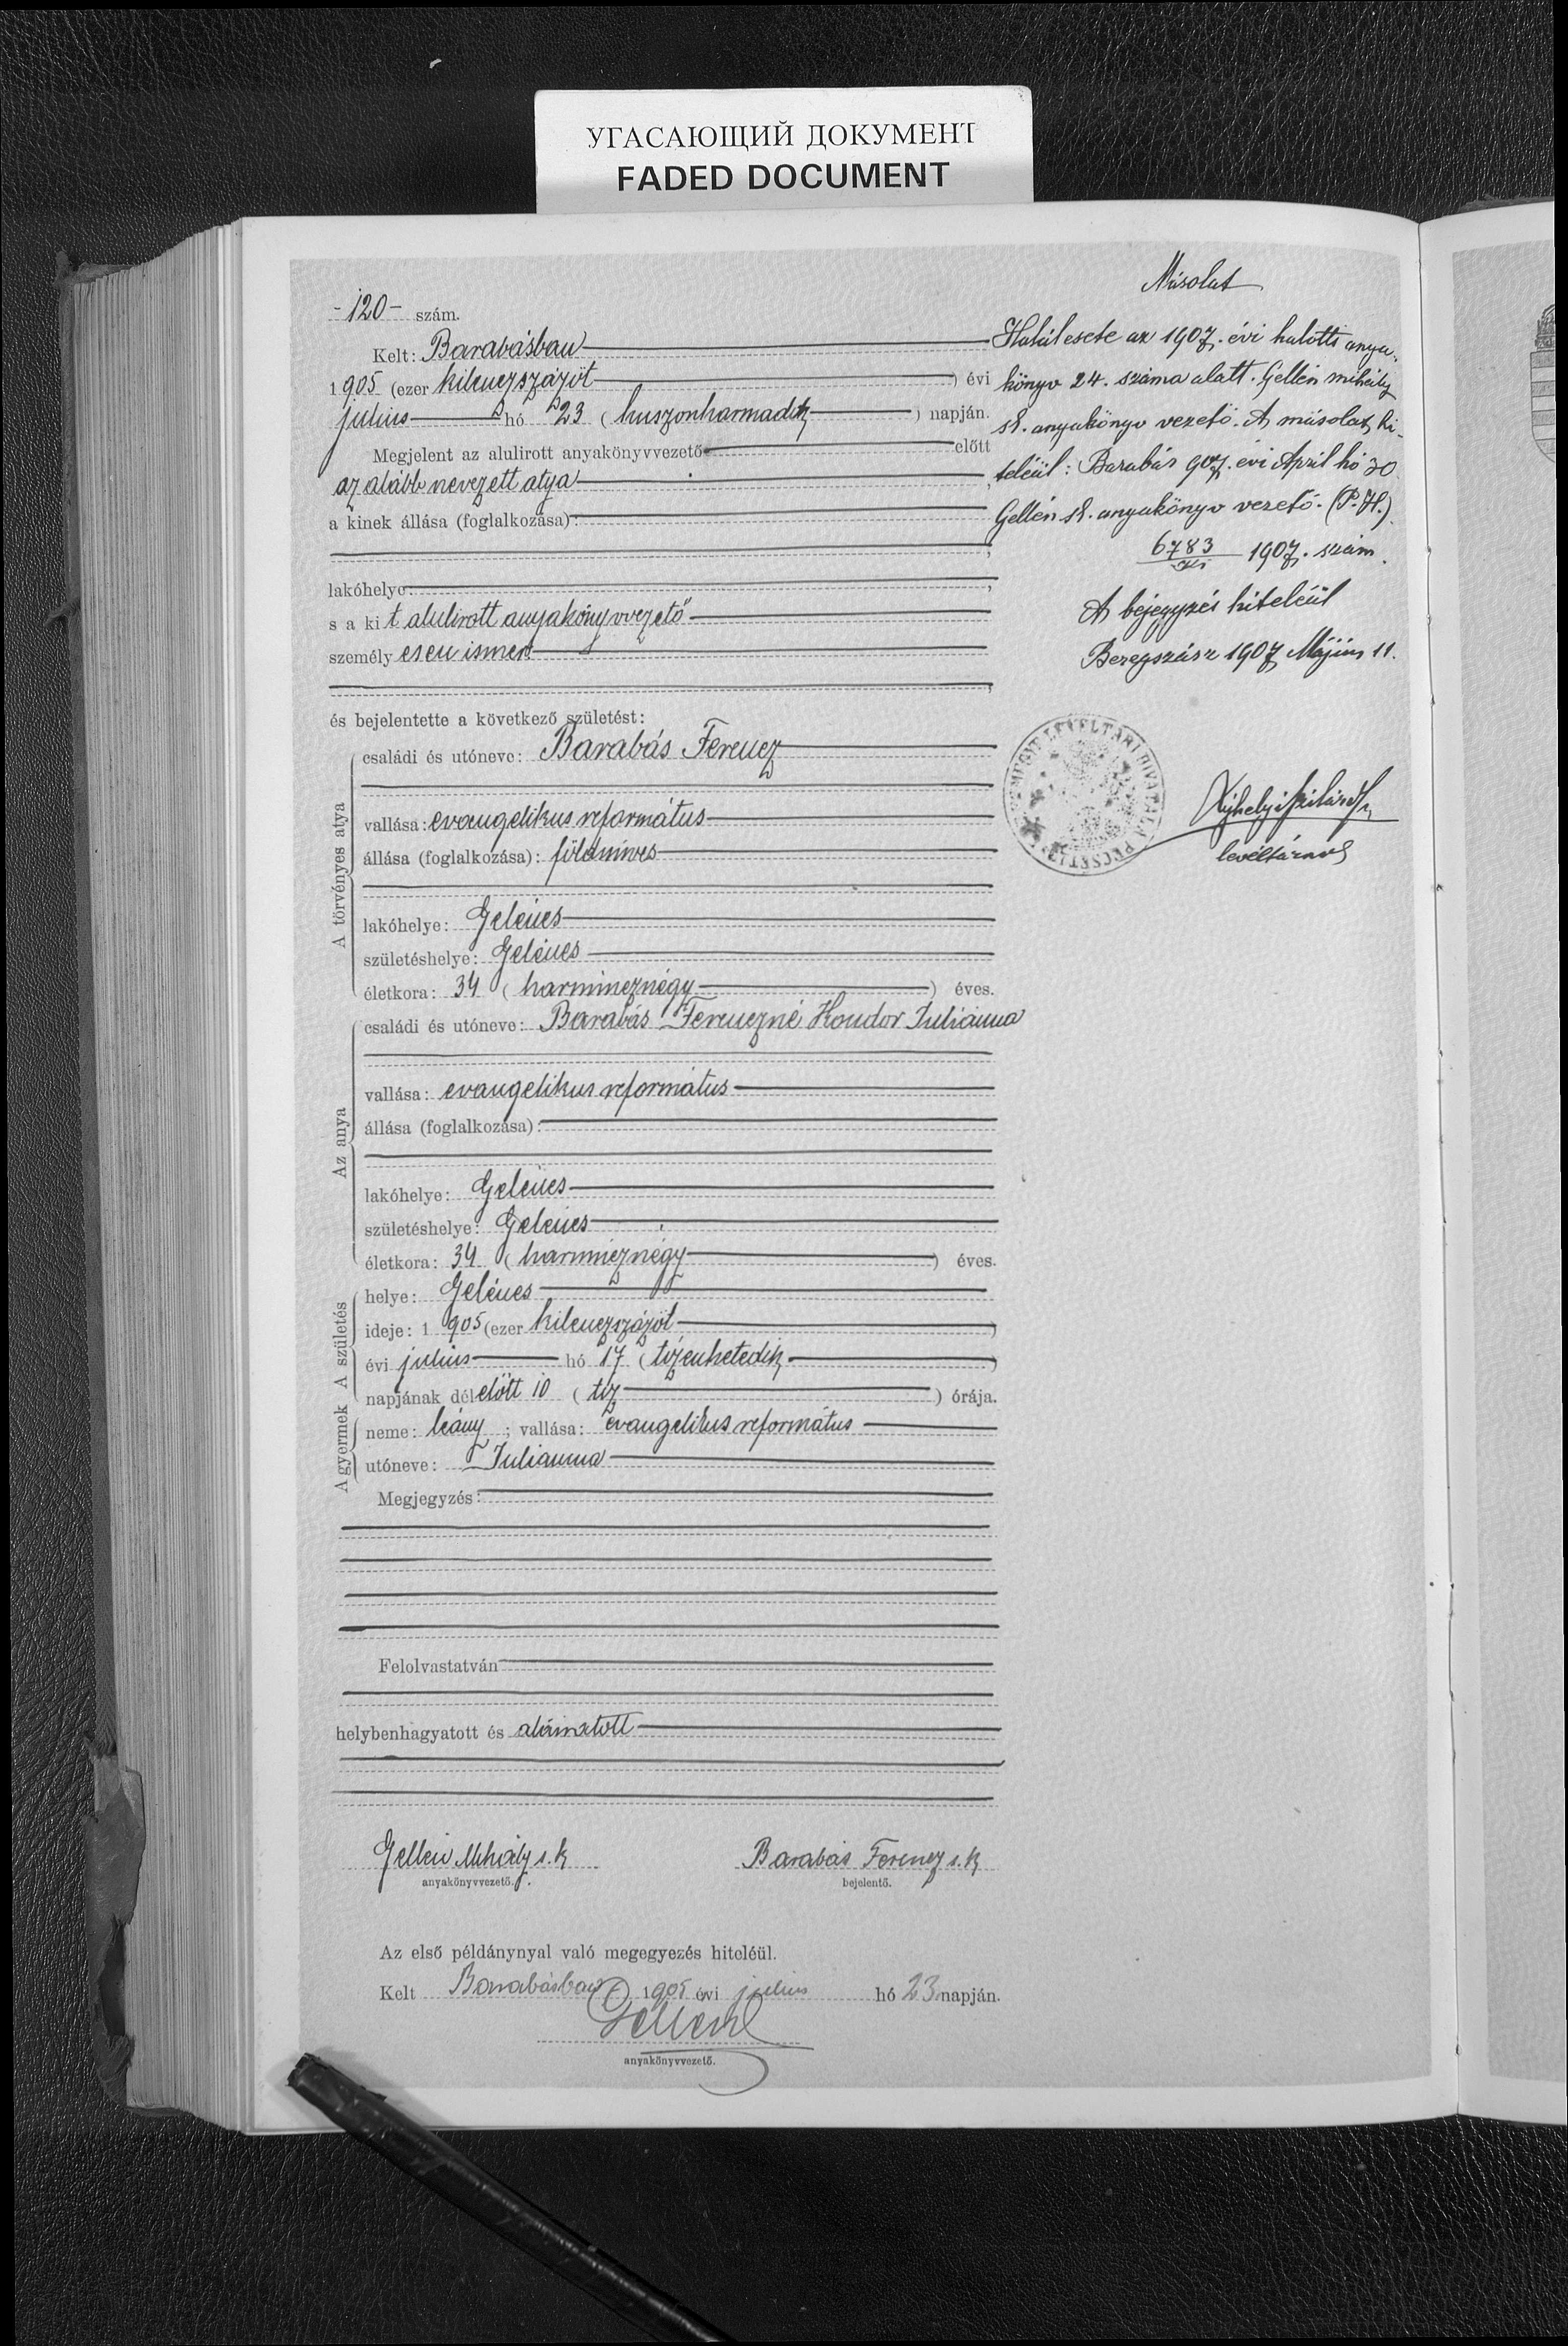 УГАСАЮЩИЙ ДОКУМЕНТ
FADED DOCUMENT
-120- szám.
Kelt: Barabásban
1905 (ezer kilenczszázöt) évi
július hó 23 (huszonharmadik) napján.
Megjelent az alulirott anyakönyvvezető előtt
az alább nevezett atya,
a kinek állása (foglalkozása):
lakóhelye:
s a kit alulirott anyakönyvvezető
személyesen ismer
és bejelentette a következő születést:
A törvényes atya
családi és utóneve: Barabás Ferencz
vallása: evangelikus református
állása (foglalkozása): földmíves
lakóhelye: Gelénes
születéshelye: Gelénes
életkora: 34 (harmincznégy) éves.
Az anya
családi és utóneve: Barabás Ferenczné Kondor Juliánna
vallása: evangelikus református
állása (foglalkozása):
lakóhelye: Gelénes
születéshelye: Gelénes
életkora: 34 (harmincznégy) éves.
A születés
helye: Gelénes
ideje: 1905 (ezer kilenczszázöt)
évi július hó 17 (tizenhetedik)
napjának délelőtt 10 (tiz) órája.
A gyermek
neme: leány; vallása: evangelikus református
utóneve: Julianna
Megjegyzés:
Felolvastatván
helybenhagyatott és aláiratott
Gellén Mihály s. k. Barabás Ferencz s. k.
anyakönyvvezető. bejelentő.
Az első példánynyal való megegyezés hiteléül.
Kelt Barabásban 1905 évi július hó 23 napján.
Gellén
anyakönyvvezető.
Másolat
Halálesete az 1907. évi halotti anya-
könyv 24. száma alatt. Gellén mihály
sk. anyakönyv vezető. A másolat hi-
teléül: Barabás 907. évi Április hó 30
Gellén sk. anyakönyv vezető. (P. H.)
6783 1907. szám.
A bejegyzés hiteléül
Beregszász 1907 Május 11.
LEVÉLTÁRI HIVATALA PECSÉTJE
levéltárnok